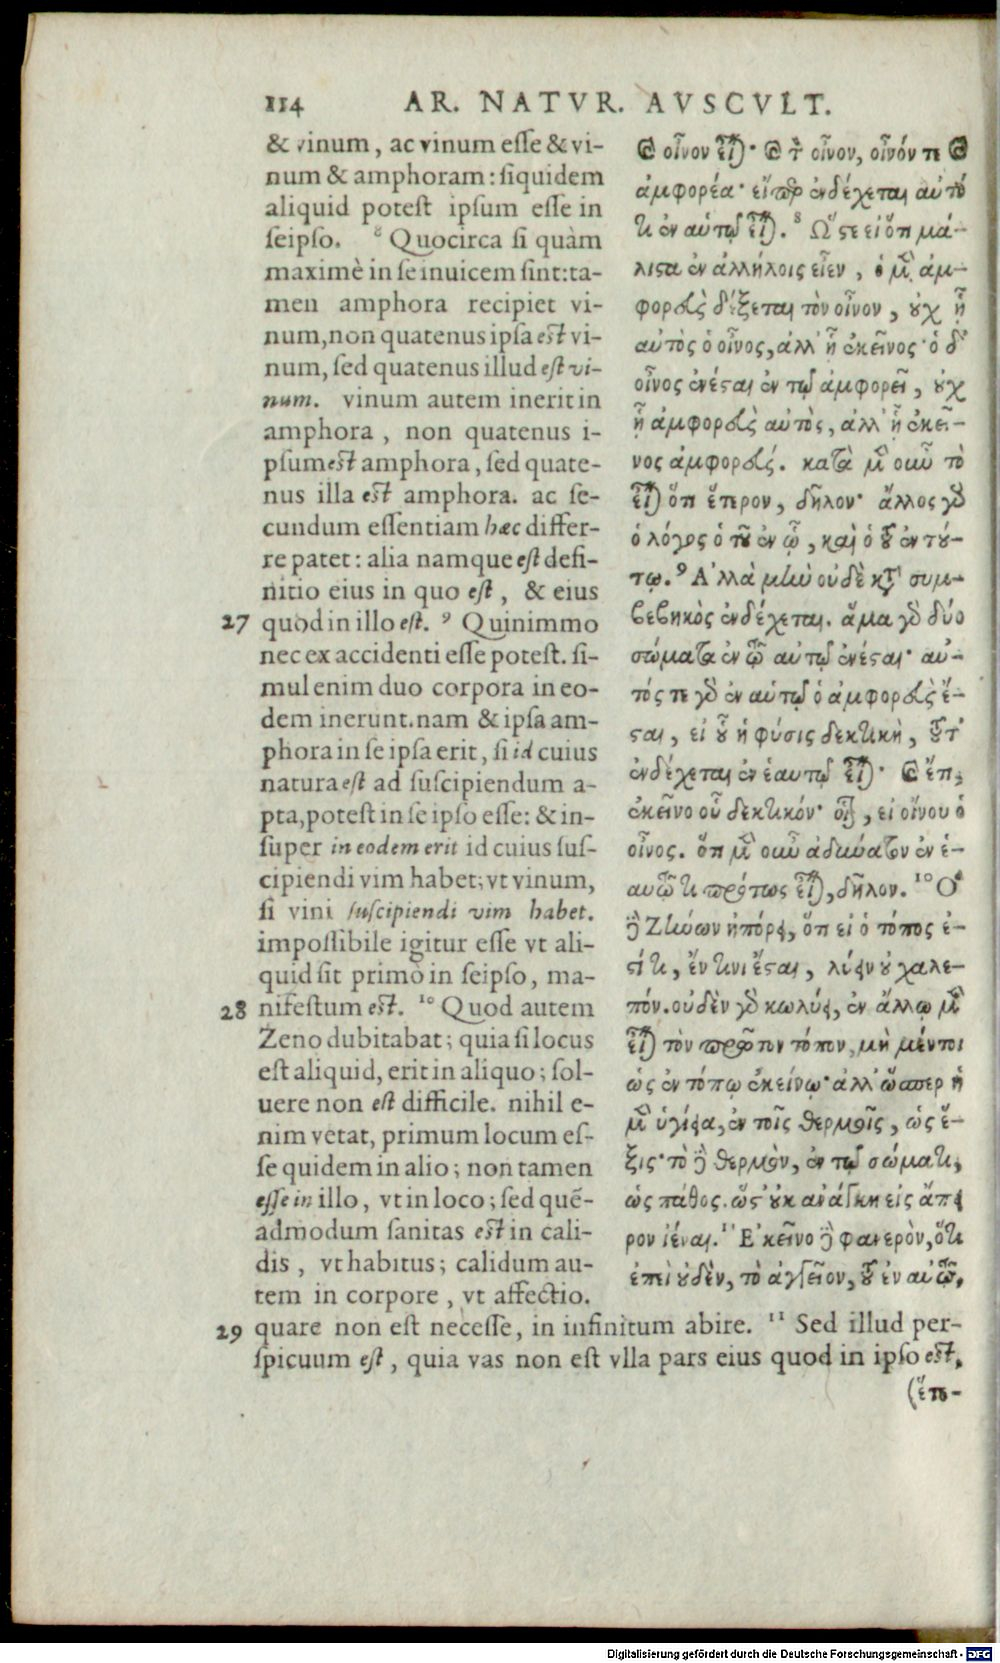 114 AR. NATVR. AVSCVLT.
& vinum, ac vinum esse & vi-
num & amphoram: siquidem
aliquid potest ipsum esse in
seipso. ⁸ Quocirca si quàm
maximè in se inuicem sint: ta-
men amphora recipiet vi-
num, non quatenus ipsa est vi-
num, sed quatenus illud est vi-
num. vinum autem inerit in
amphora, non quatenus i-
psum est amphora, sed quate-
nus illa est amphora. ac se-
cundum essentiam hæc differ-
re patet: alia namque est defi-
nitio eius in quo est, & eius
27 quod in illo est. ⁹ Quinimmo
nec ex accidenti esse potest. si-
mul enim duo corpora in eo-
dem inerunt. nam & ipsa am-
phora in se ipsa erit, si id cuius
natura est ad suscipiendum a-
pta, potest in se ipso esse: & in-
super in eodem erit id cuius sus-
cipiendi vim habet; vt vinum,
si vini suscipiendi vim habet.
impossibile igitur esse vt ali-
quid sit primò in seipso, ma-
28 nifestum est. ¹⁰ Quod autem
Zeno dubitabat; quia si locus
est aliquid, erit in aliquo; sol-
uere non est difficile. nihil e-
nim vetat, primum locum es-
se quidem in alio; non tamen
esse in illo, vt in loco; sed quē-
admodum sanitas est in cali-
dis, vt habitus; calidum au-
tem in corpore, vt affectio.
29 quare non est necesse, in infinitum abire. ¹¹ Sed illud per-
spicuum est, quia vas non est vlla pars eius quod in ipso est,
καὶ οἶνον εἶναι· καὶ τὸν οἶνον, οἶνόν τε καὶ
ἀμφορέα· εἴπερ ἐνδέχεται αὐτό
τι ἐν αὑτῷ εἶναι. ⁸ Ὥστε εἰ ὅτι μά-
λιστα ἐν ἀλλήλοις εἶεν, ὁ μὲν ἀμ-
φορεὺς δέξεται τὸν οἶνον, οὐχ ᾗ
αὐτὸς ὁ οἶνος, ἀλλ' ᾗ ἐκεῖνος· ὁ δὲ
οἶνος ἐνέσται ἐν τῷ ἀμφορεῖ, οὐχ
ᾗ ἀμφορεὺς αὐτὸς, ἀλλ' ᾗ ἐκεῖ-
νος ἀμφορεύς. κατὰ μὲν οὖν τὸ
εἶναι ὅτι ἕτερον, δῆλον· ἄλλος γὰρ
ὁ λόγος ὁ τοῦ ἐν ᾧ, καὶ ὁ τοῦ ἐν τού-
τῳ. ⁹ Ἀλλὰ μὴν οὐδὲ κατὰ συμ-
βεβηκὸς ἐνδέχεται. ἅμα γὰρ δύο
σώματα ἐν ταὐτῷ ἐνέσται· αὐ-
τός τε γὰρ ἐν αὑτῷ ὁ ἀμφορεὺς ἔ-
σται, εἰ οὗ ἡ φύσις δεκτικὴ, τοῦτ'
ἐνδέχεται ἐν ἑαυτῷ εἶναι· καὶ ἔτι,
ἐκεῖνο οὗ δεκτικόν· οἷον, εἰ οἴνου ὁ
οἶνος. ὅτι μὲν οὖν ἀδύνατον ἐν ἑ-
αυτῷ τι πρώτως εἶναι, δῆλον. ¹⁰ Ὃ
δὲ Ζήνων ἠπόρει, ὅτι εἰ ὁ τόπος ἐ-
στί τι, ἔν τινι ἔσται, λύειν οὐ χαλε-
πόν. οὐδὲν γὰρ κωλύει, ἐν ἄλλῳ μὲν
εἶναι τὸν πρῶτον τόπον, μὴ μέντοι
ὡς ἐν τόπῳ ἐκείνῳ· ἀλλ' ὥσπερ ἡ
μὲν ὑγίεια, ἐν τοῖς θερμοῖς, ὡς ἕ-
ξις· τὸ δὲ θερμὸν, ἐν τῷ σώματι,
ὡς πάθος. ὥστ' οὐκ ἀνάγκη εἰς ἄπει
ρον ἰέναι. ¹¹ Ἐκεῖνο δὲ φανερὸν, ὅτι
ἐπεὶ οὐδὲν, τὸ ἀγγεῖον, τοῦ ἐν αὐτῷ,
(ἕτε-
Digitalisierung gefördert durch die Deutsche Forschungsgemeinschaft - DFG